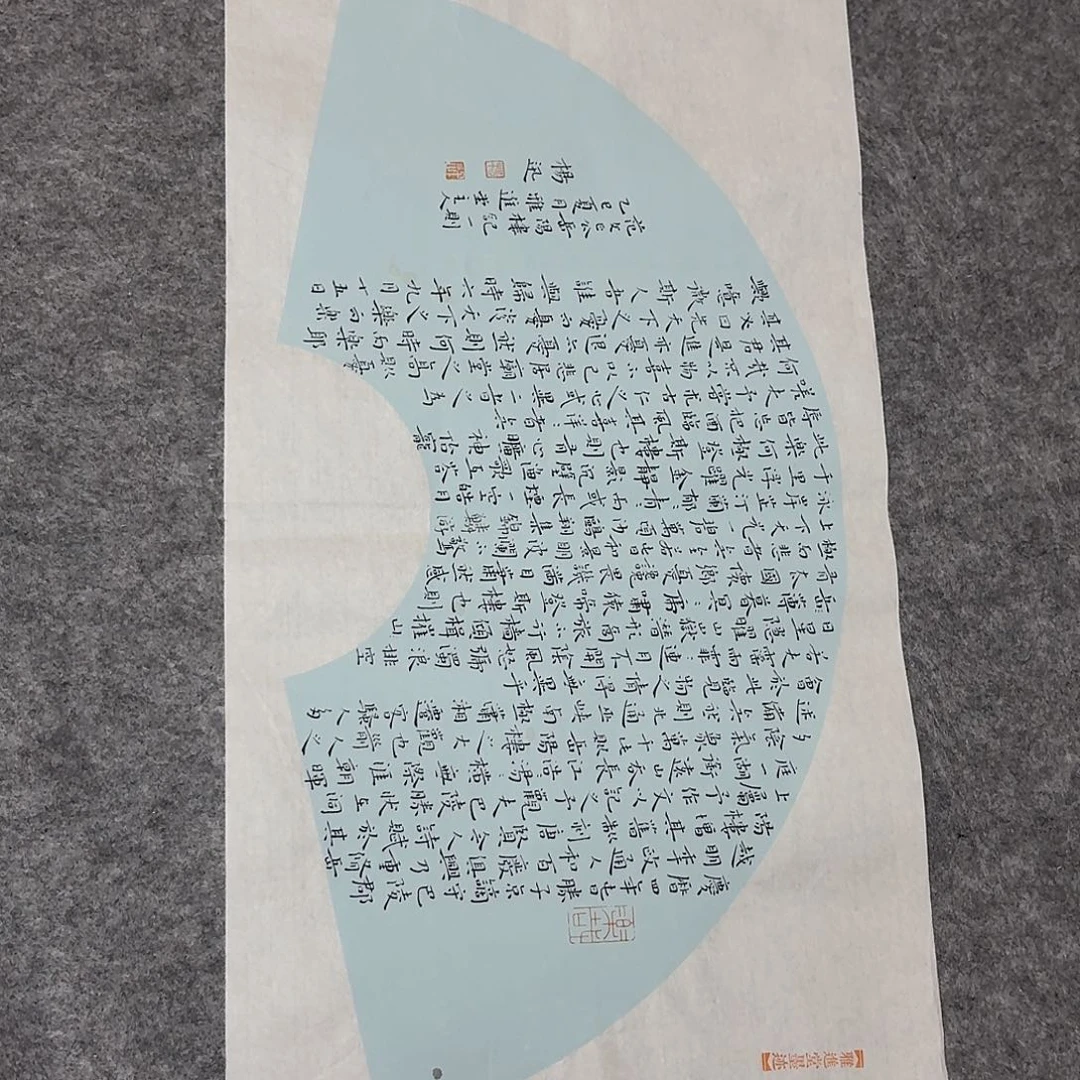 慶曆四年春滕子京謫守巴陵郡
越明年政通人和百廢俱興乃重修岳
陽樓增其舊制刻唐賢今人詩賦於其
上屬予作文以記之予觀夫巴陵勝狀在洞
庭一湖銜遠山吞長江浩:湯:橫無際涯朝暉
夕陰氣象萬千此則岳陽樓之大觀也前人之
述備矣然則北通巫峽南極瀟湘遷客騷人多
會於此覽物之情得無異乎
若夫霪雨霏:連月不開陰風怒號濁浪排空
日星隱曜山嶽潛形商旅不行檣傾楫摧
薄暮冥:虎嘯猿啼登斯樓也則
有去國懷鄉憂讒畏譏滿目蕭然感
極而悲者矣至若春和景明波瀾不驚
上下天光一碧萬頃沙鷗翔集錦鱗游
泳岸芷汀蘭郁:青:而或長煙一空皓月
千里浮光躍金靜影沉璧漁歌互答
此樂何極登斯樓也則有心曠神怡寵
辱皆忘把酒臨風其喜洋:者矣
嗟夫予嘗求古仁人之心或異二者之為
何哉不以物喜不以己悲居廟堂之高則憂
其君是進亦憂退亦憂然則何時而樂耶
其必曰先天下之憂而憂後天下之樂而樂
歟噫微斯人吾誰與歸時六年九月十五日
范文正公岳陽樓記一則
乙巳夏月雅進堂主人
楊迅
【雅進堂墨迹】